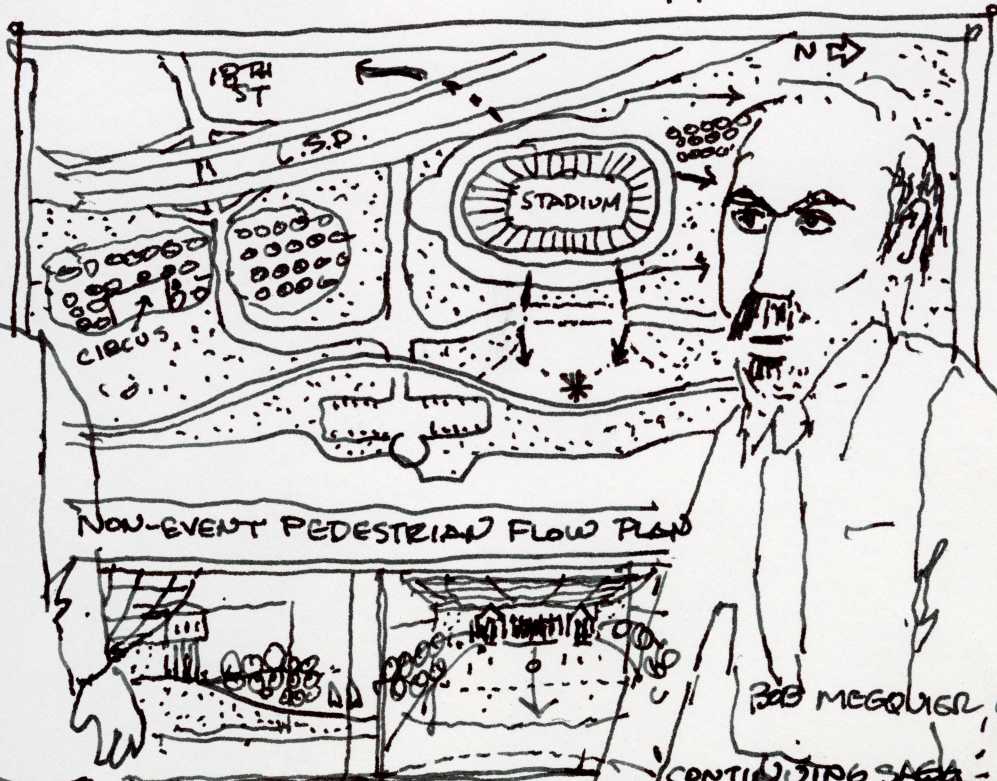 18TH
ST
N
L.S.D.
STADIUM
CIRCUS
NON-EVENT PEDESTRIAN FLOW PLAN
BOB MEGQUIER,
CONTINUING SAGA